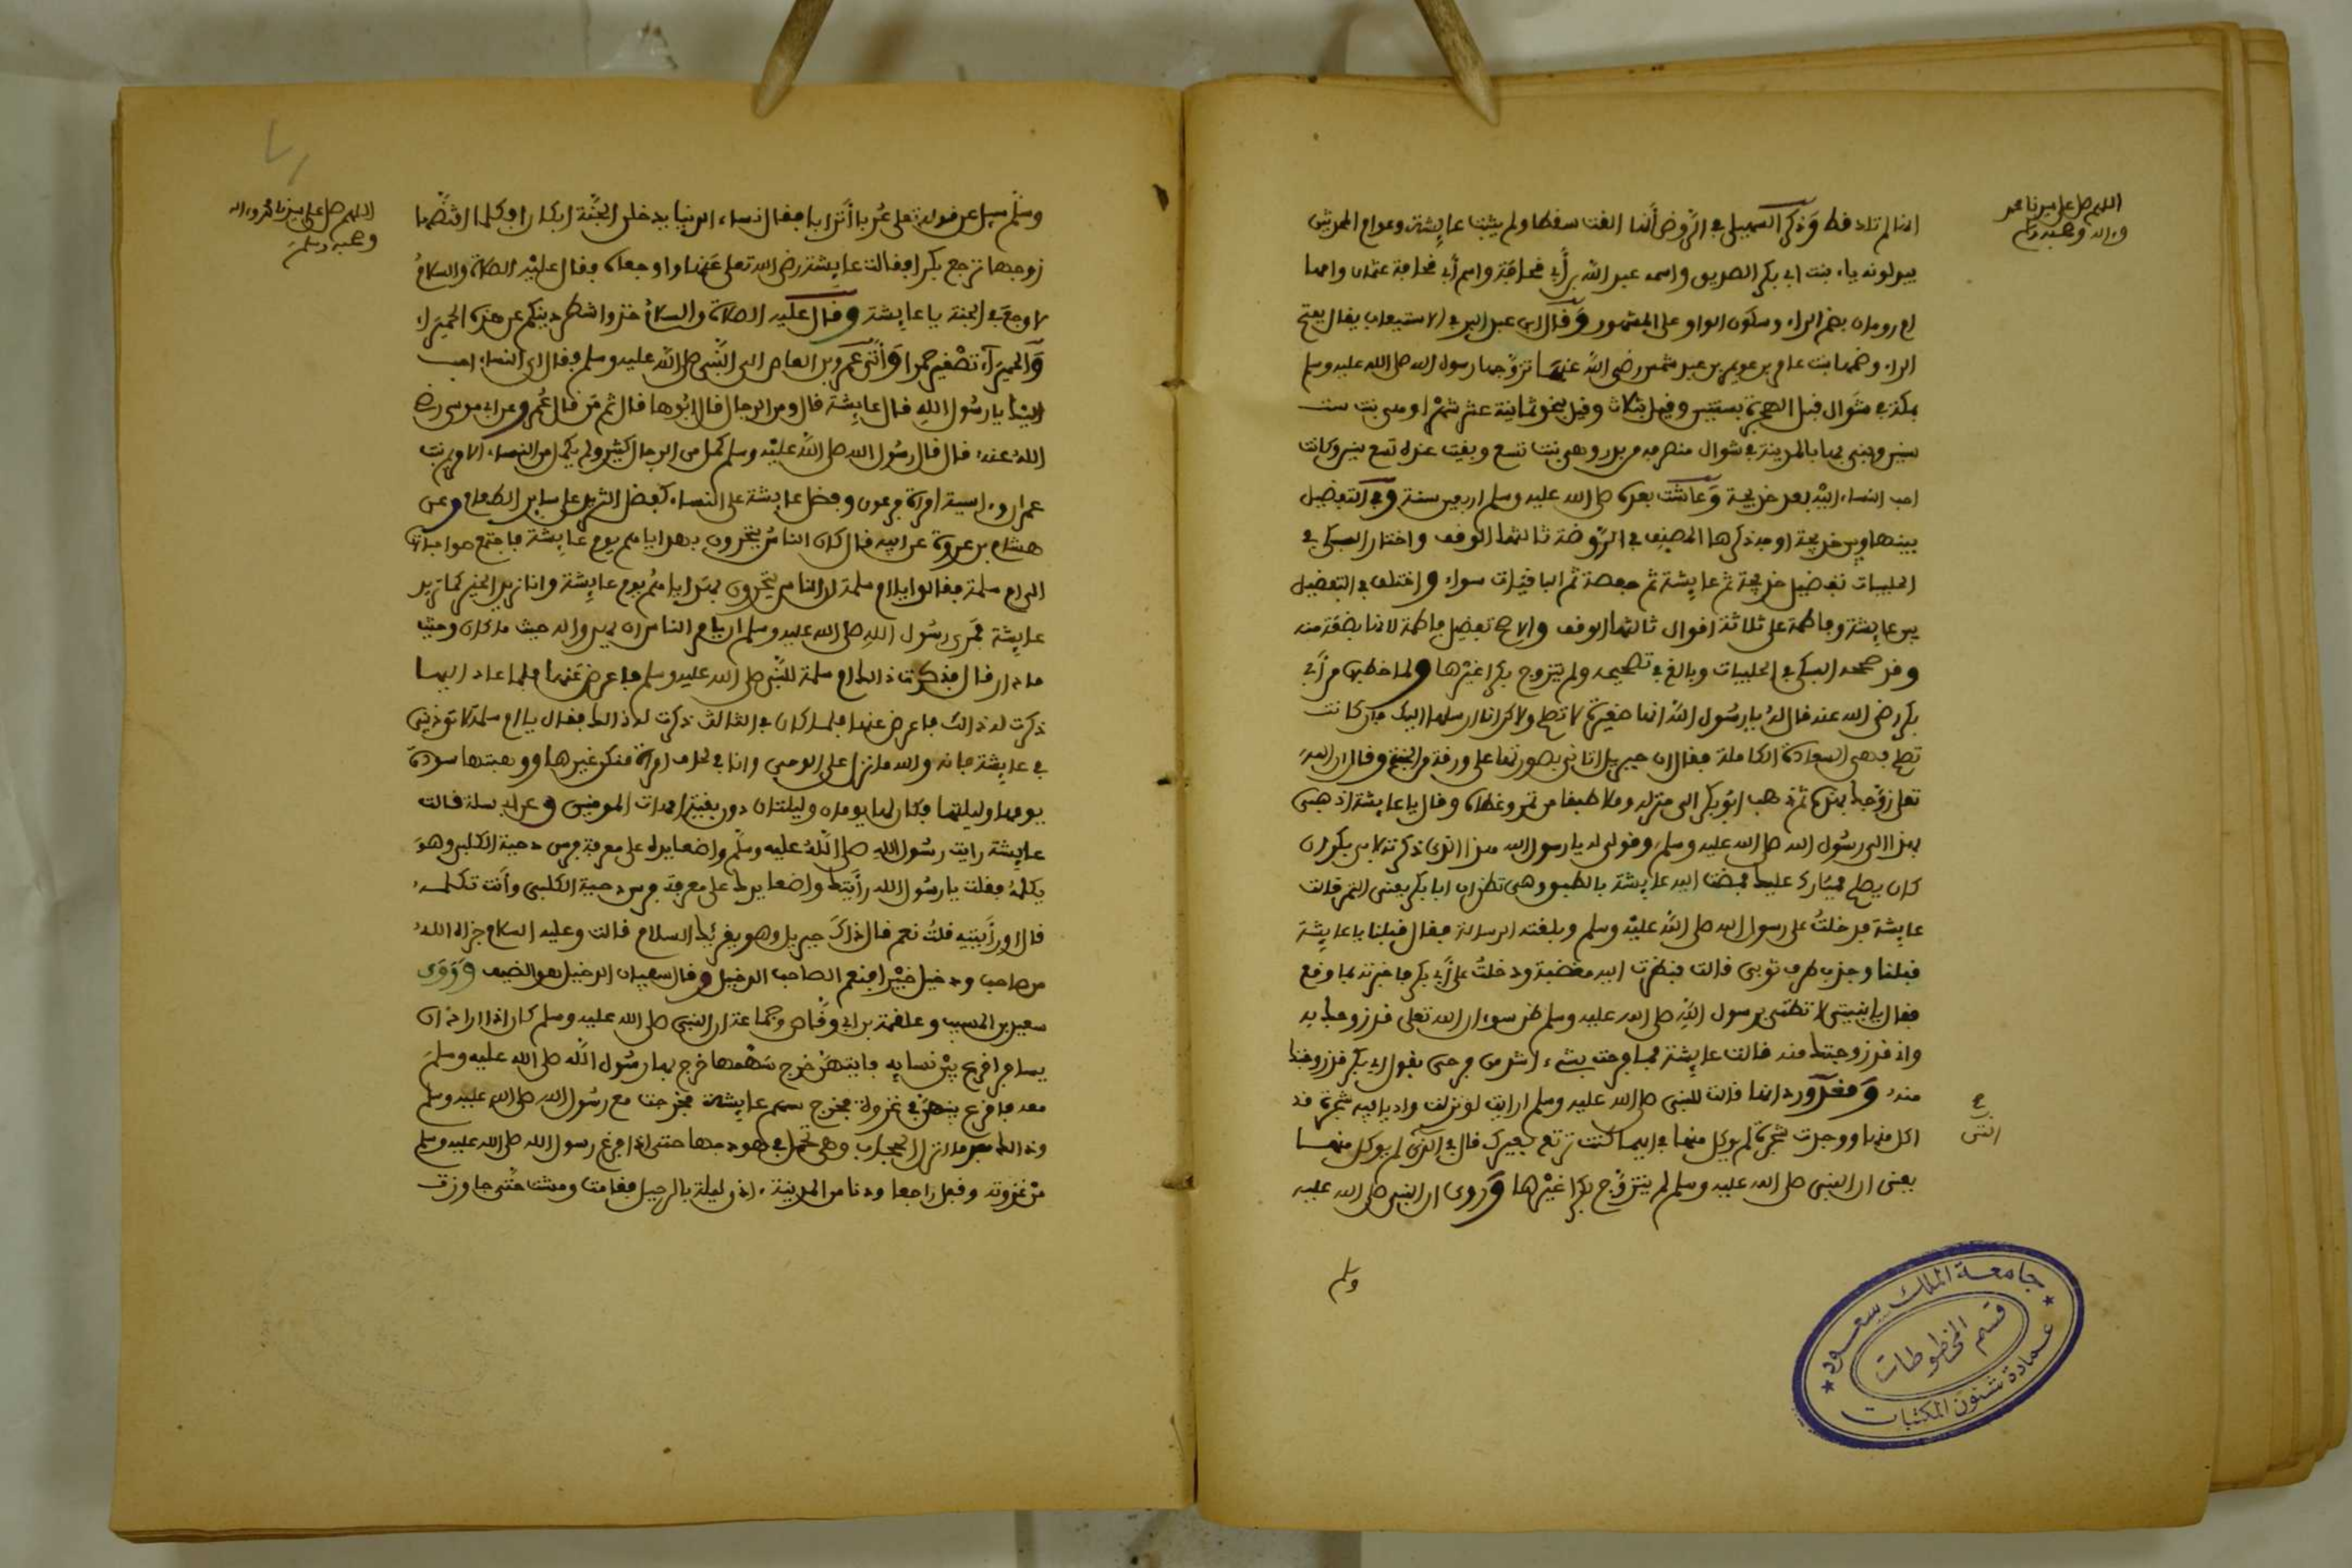 اللهم صل على سيدنا محمد
وءاله وصحبه وسلم
انها لم تلد قط وذكر السهيلي في الروض أنها ألقت سقطا ولم يثبت عايشة وعوام المحدثين
يبدلونه ياء بنت ابي بكر الصديق واسمه عبد الله بن أبي قحافة واسم أبي قحافة عثمان وامها
ام رومان بضم الراء وسكون الواو على المشهور وقال ابن عبد البر في الاستيعاب يقال بفتح
الراء وضمها بنت عامر بن عويمر بن عبد شمس رضي الله عنها تزوجها رسول الله صلى الله عليه وسلم
بمكة في شوال قبل الهجرة بسنتين وقيل بثلاث وقيل بنحو ثمانية عشر شهرا وهي بنت ست
سنين وبنى بها بالمدينة في شوال منصرفه من بدر وهي بنت تسع وبقيت عنده تسع سنين وكانت
احب النساء اليه بعد خديجة وعاشت بعده صلى الله عليه وسلم اربعين سنة وفي التفضيل
بينها وبين خديجة اوجه ذكرها المصنف في الروضة ثالثها الوقف واختار السبكي في
الحلبيات تفضيل خديجة ثم عايشة ثم حفصة ثم الباقيات سواء واختلف في التفضيل
بين عايشة وفاطمة على ثلاثة اقوال ثالثها الوقف والاصح تفضيل فاطمة لانها بضعة منه
وقد صححه السبكي في الحلبيات وبالغ في تصحيحه ولم يتزوج بكرا غيرها ولما خطبها من أبي
بكر رضي الله عنه قال له يا رسول الله انها صغيرة لا تصلح ولاكن انا ارسلها اليك فإن كانت
تصلح فهي السعادة الكاملة فقال ان جبريل اتاني بصورتها على ورقة من الجنة وقال ان الله
تعلى زوجك بهذه ثم ذهب ابو بكر الى منزله وملا طبقا من تمر وغطاه وقال يا عايشة اذهبي
بهذا الى رسول الله صلى الله عليه وسلم وقولي له يا رسول الله هذا الذي ذكرته لابي بكر ان
كان يصلح فبارك عليه فمضت اليه عايشة بالطبق وهي تظن ان ابا بكر يعني التمر قالت
عايشة فدخلت على رسول الله صلى الله عليه وسلم وبلغته الرسالة فقال قبلنا يا عايشة
قبلنا وجذب طرف ثوبي قالت فنظرت اليه مغضبة ودخلت على أبي بكر فاخبرته بما وقع
فقال يا بنيتي لا تظني برسول الله صلى الله عليه وسلم ظن سوء ان الله تعلى قد زوجك به
واني قد زوجتك منه قالت عايشة فما فرحت بشيء اشد من فرحي بقول ابي بكر قد زوجتك
منه وقد ورد انها قالت للنبي صلى الله عليه وسلم ارايت لو نزلت واديا فيه شجرة قد
اكل منها ووجدت شجرة لم يوكل منها في ايهما كنت ترتع بعيرك قال في التي لم يوكل منها
يعني ان النبي صلى الله عليه وسلم لم يتزوج بكرا غيرها وروى ان النبي صلى الله عليه
التي
وسلم
جامعة الملك سعود
قسم المخطوطات
عمادة شئون المكتبات
اللهم صل على سيدنا محمد وءاله
وصحبه وسلم
وسلم سيل عن قوله تعلى عربا أترابا فقال نساء الدنيا يدخلن الجنة ابكارا فكلما افتضها
زوجها ترجع بكرا فقالت عايشة رضي الله تعلى عنها واوجعاه فقال عليه الصلاة والسلام
لا وجع في الجنة يا عايشة وقال عليه الصلاة والسلام خذوا شطر دينكم عن هذه الحميراء
والحميراء تصغير حمرا وأتى عمرو بن العاص الى النبي صلى الله عليه وسلم فقال اي النساء احب
اليك يا رسول الله قال عايشة قال ومن الرجال قال ابوها قال ثم من قال عمر وعن ابي موسى رضي
الله عنه قال قال رسول الله صلى الله عليه وسلم كمل من الرجال كثير ولم يكمل من النساء الا مريم بنت
عمران واسية امرأة فرعون وفضل عايشة على النساء كفضل الثريد على ساير الطعام وعن
هشام بن عروة عن ابيه قال كان الناس يتحرون بهداياهم يوم عايشة فاجتمع صواحباتها
الى ام سلمة فقالوا يا ام سلمة ان الناس يتحرون بهداياهم يوم عايشة وانا نريد الخير كما تريد
عايشة فمري رسول الله صلى الله عليه وسلم ان يامر الناس ان يهدوا له حيث ما كان وحيث
ما دار قال فذكرت ذالك ام سلمة للنبي صلى الله عليه وسلم فاعرض عنها فلما عاد اليها
ذكرت له ذالك فاعرض عنها فلما كان في الثالث ذكرت له ذالك فقال يا ام سلمة لا توذيني
في عايشة فانه والله ما نزل علي الوحي وانا في لحاف امرأة منكن غيرها ووهبتها سودة
يومها وليلتها فكان لها يومان وليلتان دون بقية امهات المومنين وعن ابي سلمة قالت
عايشة رايت رسول الله صلى الله عليه وسلم واضعا يده على معرفة فرس دحية الكلبي وهو
يكلمه فقلت يا رسول الله رأيتك واضعا يدك على معرفة فرس دحية الكلبي وأنت تكلمه
قال او رأيتيه قلت نعم قال ذاك جبريل وهو يقرئك السلام قالت وعليه السلام جزاه الله
من صاحب ودخيل خيرا فنعم الصاحب الدخيل وقال سفيان الدخيل هو الضيف وروى
سعيد بن المسيب وعلقمة بن ابي وقاص وجماعة ان النبي صلى الله عليه وسلم كان اذا اراد ان
يسافر اقرع بين نسايه فايتهن خرج سهمها خرج بها رسول الله صلى الله عليه وسلم
معه فاقرع بينهن في غزوة فخرج سهم عايشة فخرجت مع رسول الله صلى الله عليه وسلم
وذالك بعد ما انزل الحجاب وهي تحمل في هودجها حتى اذا فرغ رسول الله صلى الله عليه وسلم
من غزوته وقفل راجعا ودنا من المدينة اذن ليلة بالرحيل فقامت ومشت حتى جاوزت